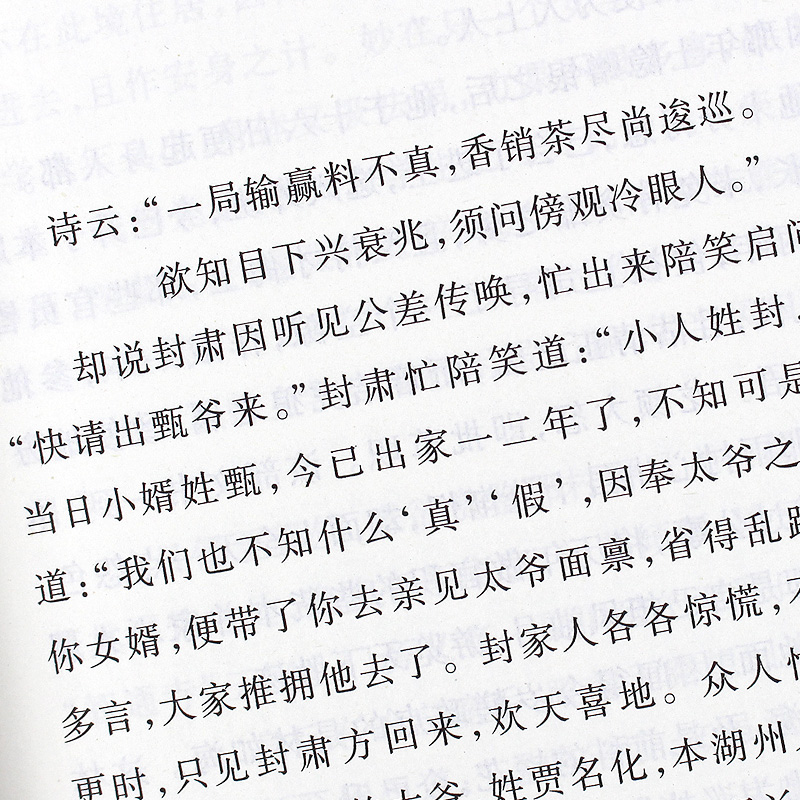 诗云:“一局输赢料不真,香销茶尽尚逡巡。
欲知目下兴衰兆,须问傍观冷眼人。”
却说封肃因听见公差传唤,忙出来陪笑启问
“快请出甄爷来。”封肃忙陪笑道:“小人姓封,
当日小婿姓甄,今已出家一二年了,不知可是
道:“我们也不知什么‘真’‘假’,因奉太爷之
你女婿,便带了你去亲见太爷面禀,省得乱跑
多言,大家推拥他去了。封家人各各惊慌,不
更时,只见封肃方回来,欢天喜地。众人忙
太爷,姓贾名化,本湖州